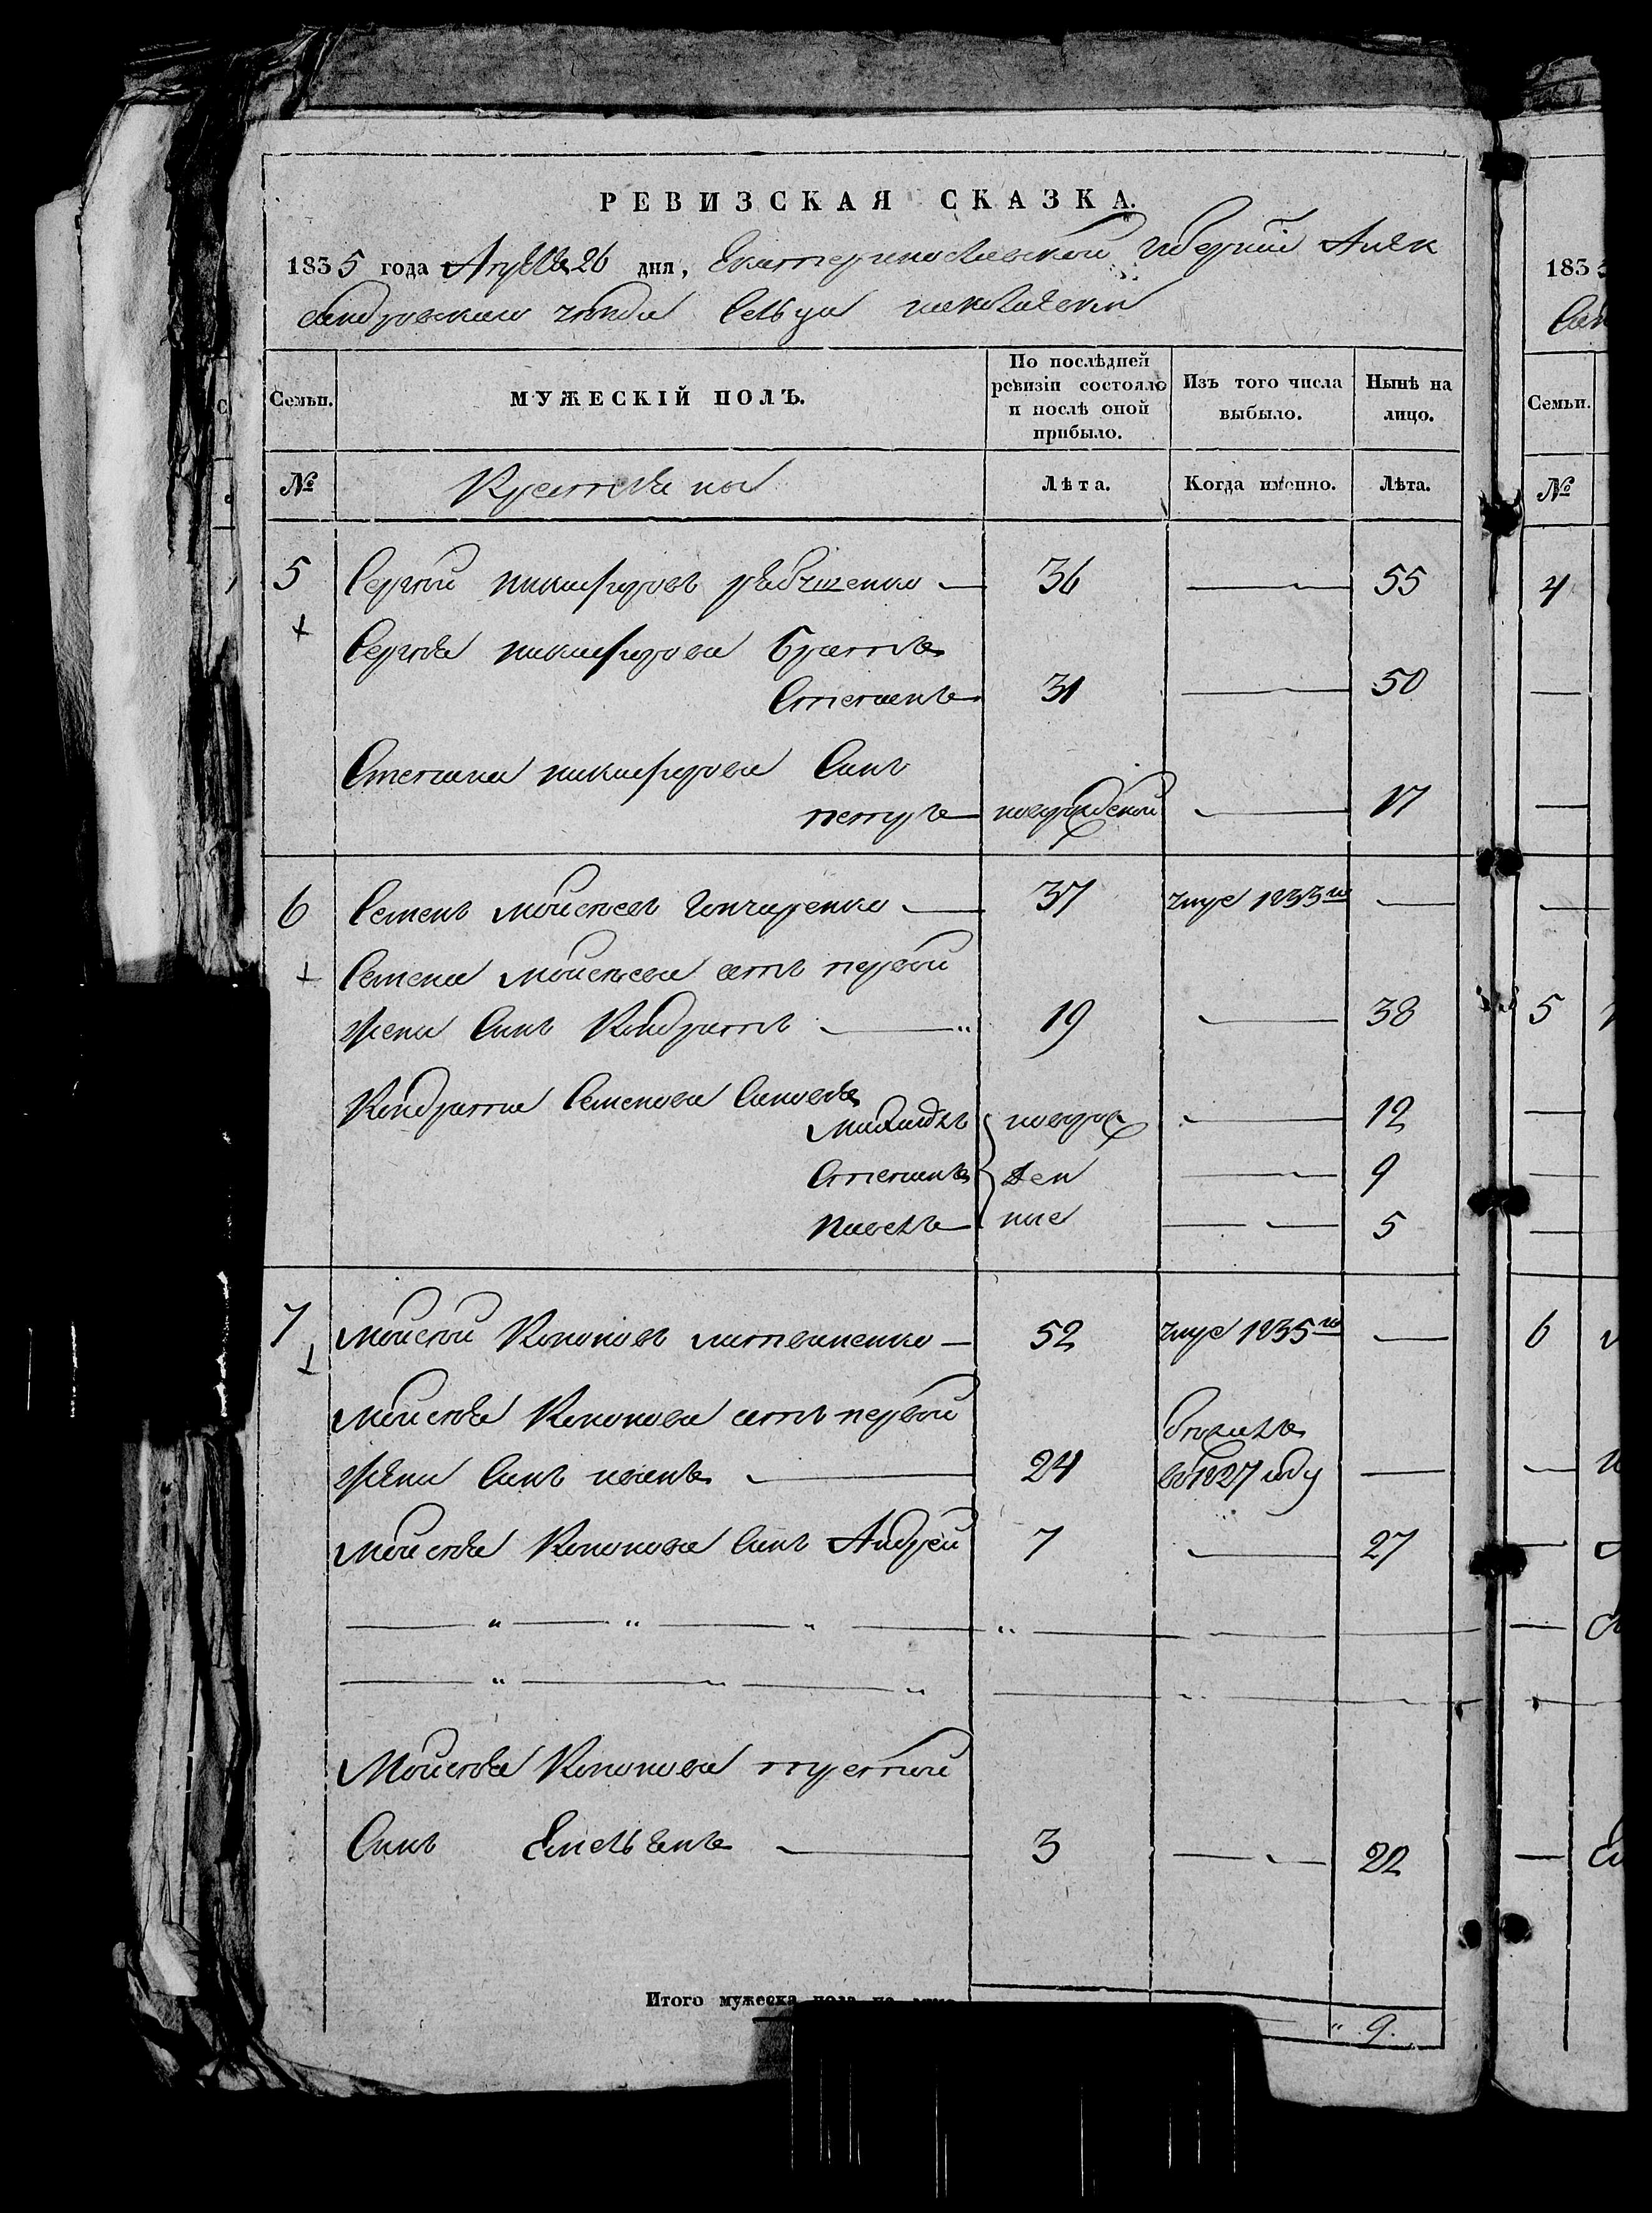 РЕВИЗСКАЯ СКАЗКА.
1835 года Апреля 26 дня, Екатеринославской губернии Алек
сандровского уезда сельца
Семьи. МУЖЕСКІЙ ПОЛЪ. По послѣдней ревизіи состояло и послѣ оной прибыло. Изъ того числа выбыло. Нынѣ на лицо.
№ Крестьяне Лѣта. Когда именно. Лѣта.
5 Сергей Никифоровъ — 36 — 55
Сергея Никифорова братъ
Степанъ 31 — 50
Степана Никифорова Синъ
Петръ новорожденой — 17
6 Семенъ Моисеевъ Гончаренко — 37 умре 1833го —
Семена Моисеева отъ первой
жены Синъ Кондратъ — 19 — 38
Кондратия Семенова Синовья
новорож — 12
Степанъ ден — 9
Павелъ ные — 5
7 Моисей Кононовъ Литвиненко — 52 умре 1835го —
Моисея Кононова отъ первой
жены Синъ 24 во 1827 году —
Моисея Кононова Синъ Андрей 7 — 27
Моисея Кононова третий
Синъ Емельянъ — 3 — 22
Итого мужеска пола на
9.
183
Семьи.
№
4
5
6